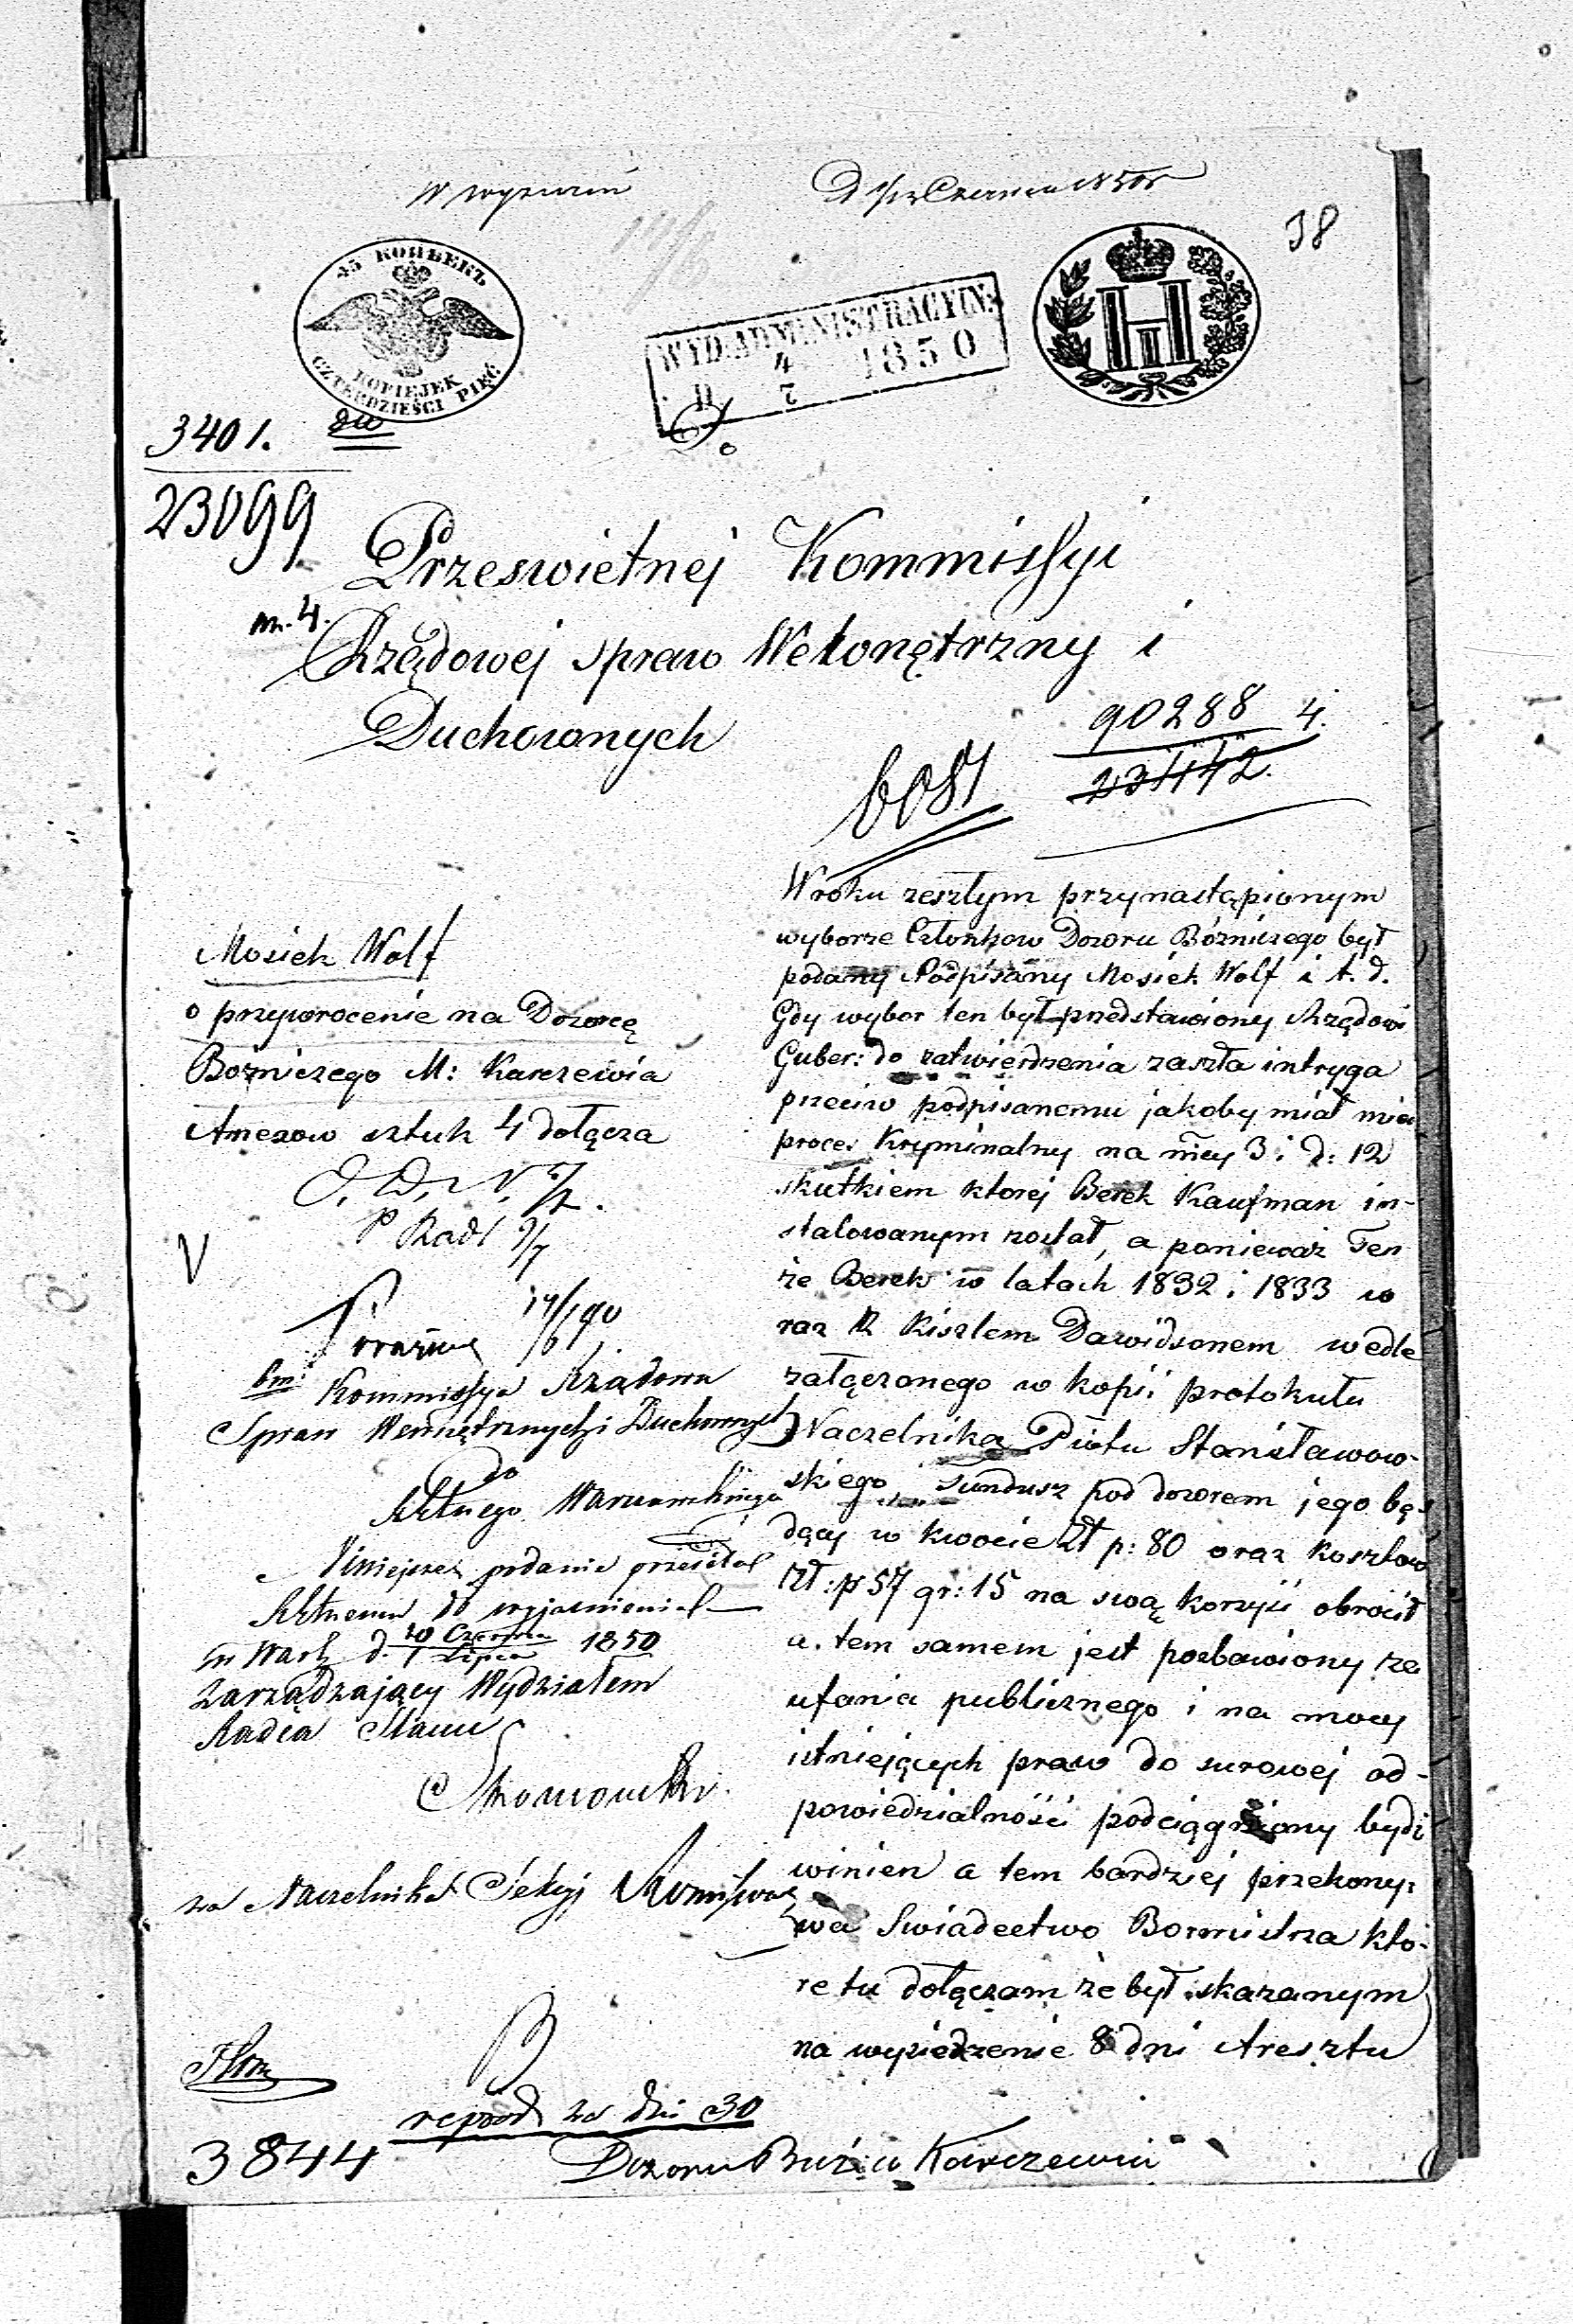 38
45 КОПѢЕКЪ
KOPIEJEK
CZTERDZIEŚCI PIĘĆ
WYD. ADMINISTRACYIN.
D 4/7 1850
3401.
23099
Przeswietnej Kommissyi
Rządowej spraw Wewnętrzny i
Duchownych
90288 4.
23442.
Mosiek Wolf
o przywrocenie na Dozorcę
Bożniczego M: Karczewia
Anexow sztuk 4 dołącza
Kommissya Rządowa
Spraw Wewnętrznych i Duchownych
do
Rządu Gubernialnego Warszawskiego
Niniejsze podanie przesyła
do wyjaśnienia
w Warsz d. 1850
Zarządzający Wydziałem
Radca Stanu
za Naczelnika Sekcyi
W roku zeszłym przynastąpionym
wyborze Członkow Dozoru Bóźniczego był
podany Podpisany Mosiek Wolf i t. d.
Gdy wybor ten był przedstawiony Rządowi
Guber: do zatwierdzenia zaszła intryga
przeciw podpisanemu jakoby miał mieć
proces Kryminalny na mcy 3 i d: 12
skutkiem ktorej Berek Kaufman in-
stalowanym został, a ponieważ Ten
że Berek w latach 1832 i 1833 w
raz z Kiszlem Dawidsonem wedle
załączonego w kopii protokułu
Naczelnika Ptu Stanisławow-
skiego, Fundusz pod dozorem jego bę-
dący w kwocie Zł p: 80 oraz kosztow
Zł: p 57 gr: 15 na swą korzyść obrocił
a tem samem jest pozbawiony za
ufania publicznego i na mocy
istniejących praw do surowej od-
powiedzialności podciągniony bydź
winien a tem bardziej przekony-
wa Swiadectwo Bormistrza kto-
re tu dołączam że był skazanym
na wysiedzenie 8 dni Aresztu
3844
Dozoru Buźn Karczewiu